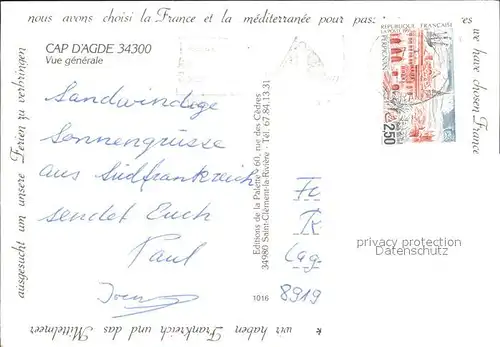 nous avons choisi la France et la méditerranée pour pas
we have chosen France
wir haben Frankreich und das Mittelmeer
ausgesucht um unsere Ferien zu verbringen
CAP D'AGDE 34300
Vue générale
Sandwindige
Sonnengrüsse
aus Südfrankreich
sendet Euch
Paul
Editions de la Palette, 60, rue des Cèdres
34980 Saint-Clément-la-Rivière - Tél. 67.84.13.31
1016
8919
REPUBLIQUE FRANÇAISE
LA POSTE
PERPIGNAN
2,50
privacy protection
Datenschutz